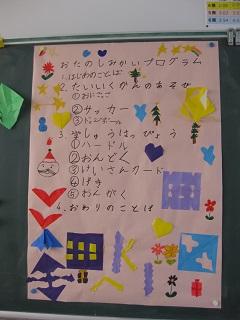 おたのしみかいプログラム
1.はじめのことば
2.たいいくかんのあそび
①おにごっこ
②サッカー
③ドッジボール
3.学しゅうはっぴょう
①ハードル
②おんどく
③けいさんカード
④げき
⑤おんがく
4.おわりのことば